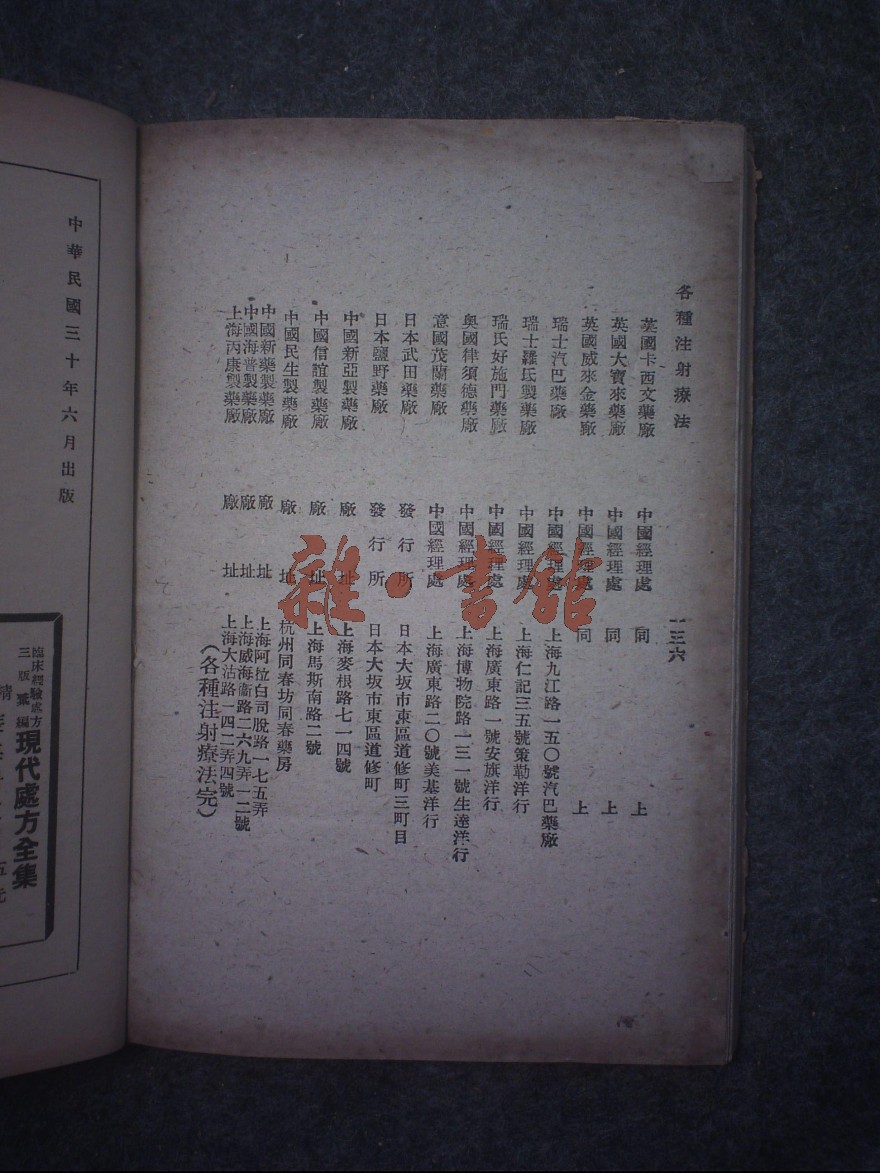 各種注射療法
一三六
英國卡西文藥廠 中國經理處 同 上
英國大寶來藥廠 中國經理處 同 上
英國威來金藥廠 中國經理處 同 上
瑞士汽巴藥廠 中國經理處 上海九江路一五〇號汽巴藥廠
瑞士羅氏製藥廠 中國經理處 上海仁記三五號策勒洋行
瑞氏好施門藥廠 中國經理處 上海廣東路一號安旗洋行
奧國律須德藥廠 中國經理處 上海博物院路一三一號生達洋行
意國茂蘭藥廠 中國經理處 上海廣東路二〇號美基洋行
日本武田藥廠 發行所 日本大坂市東區道修町三町目
日本鹽野藥廠 發行所 日本大坂市東區道修町
中國新亞製藥廠 廠址 上海麥根路七一四號
中國信誼製藥廠 廠址 上海馬斯南路二號
中國民生製藥廠 廠址 杭州同春坊同春藥房
中國新藥製藥廠 廠址 上海阿拉白司脫路一七五弄
中國海普製藥廠 廠址 上海威海衞路二六九弄一二號
上海丙康製藥廠 廠址 上海大沽路一四二弄四號
(各種注射療法完)
中華民國三十年六月出版
臨床經驗處方
三版彙編
現代處方全集
雜·書館